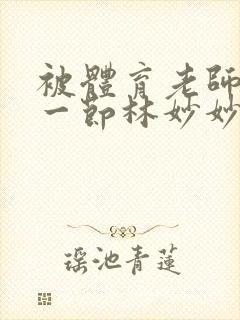 被體育老師
一節林妙妙
瑶池青蓮